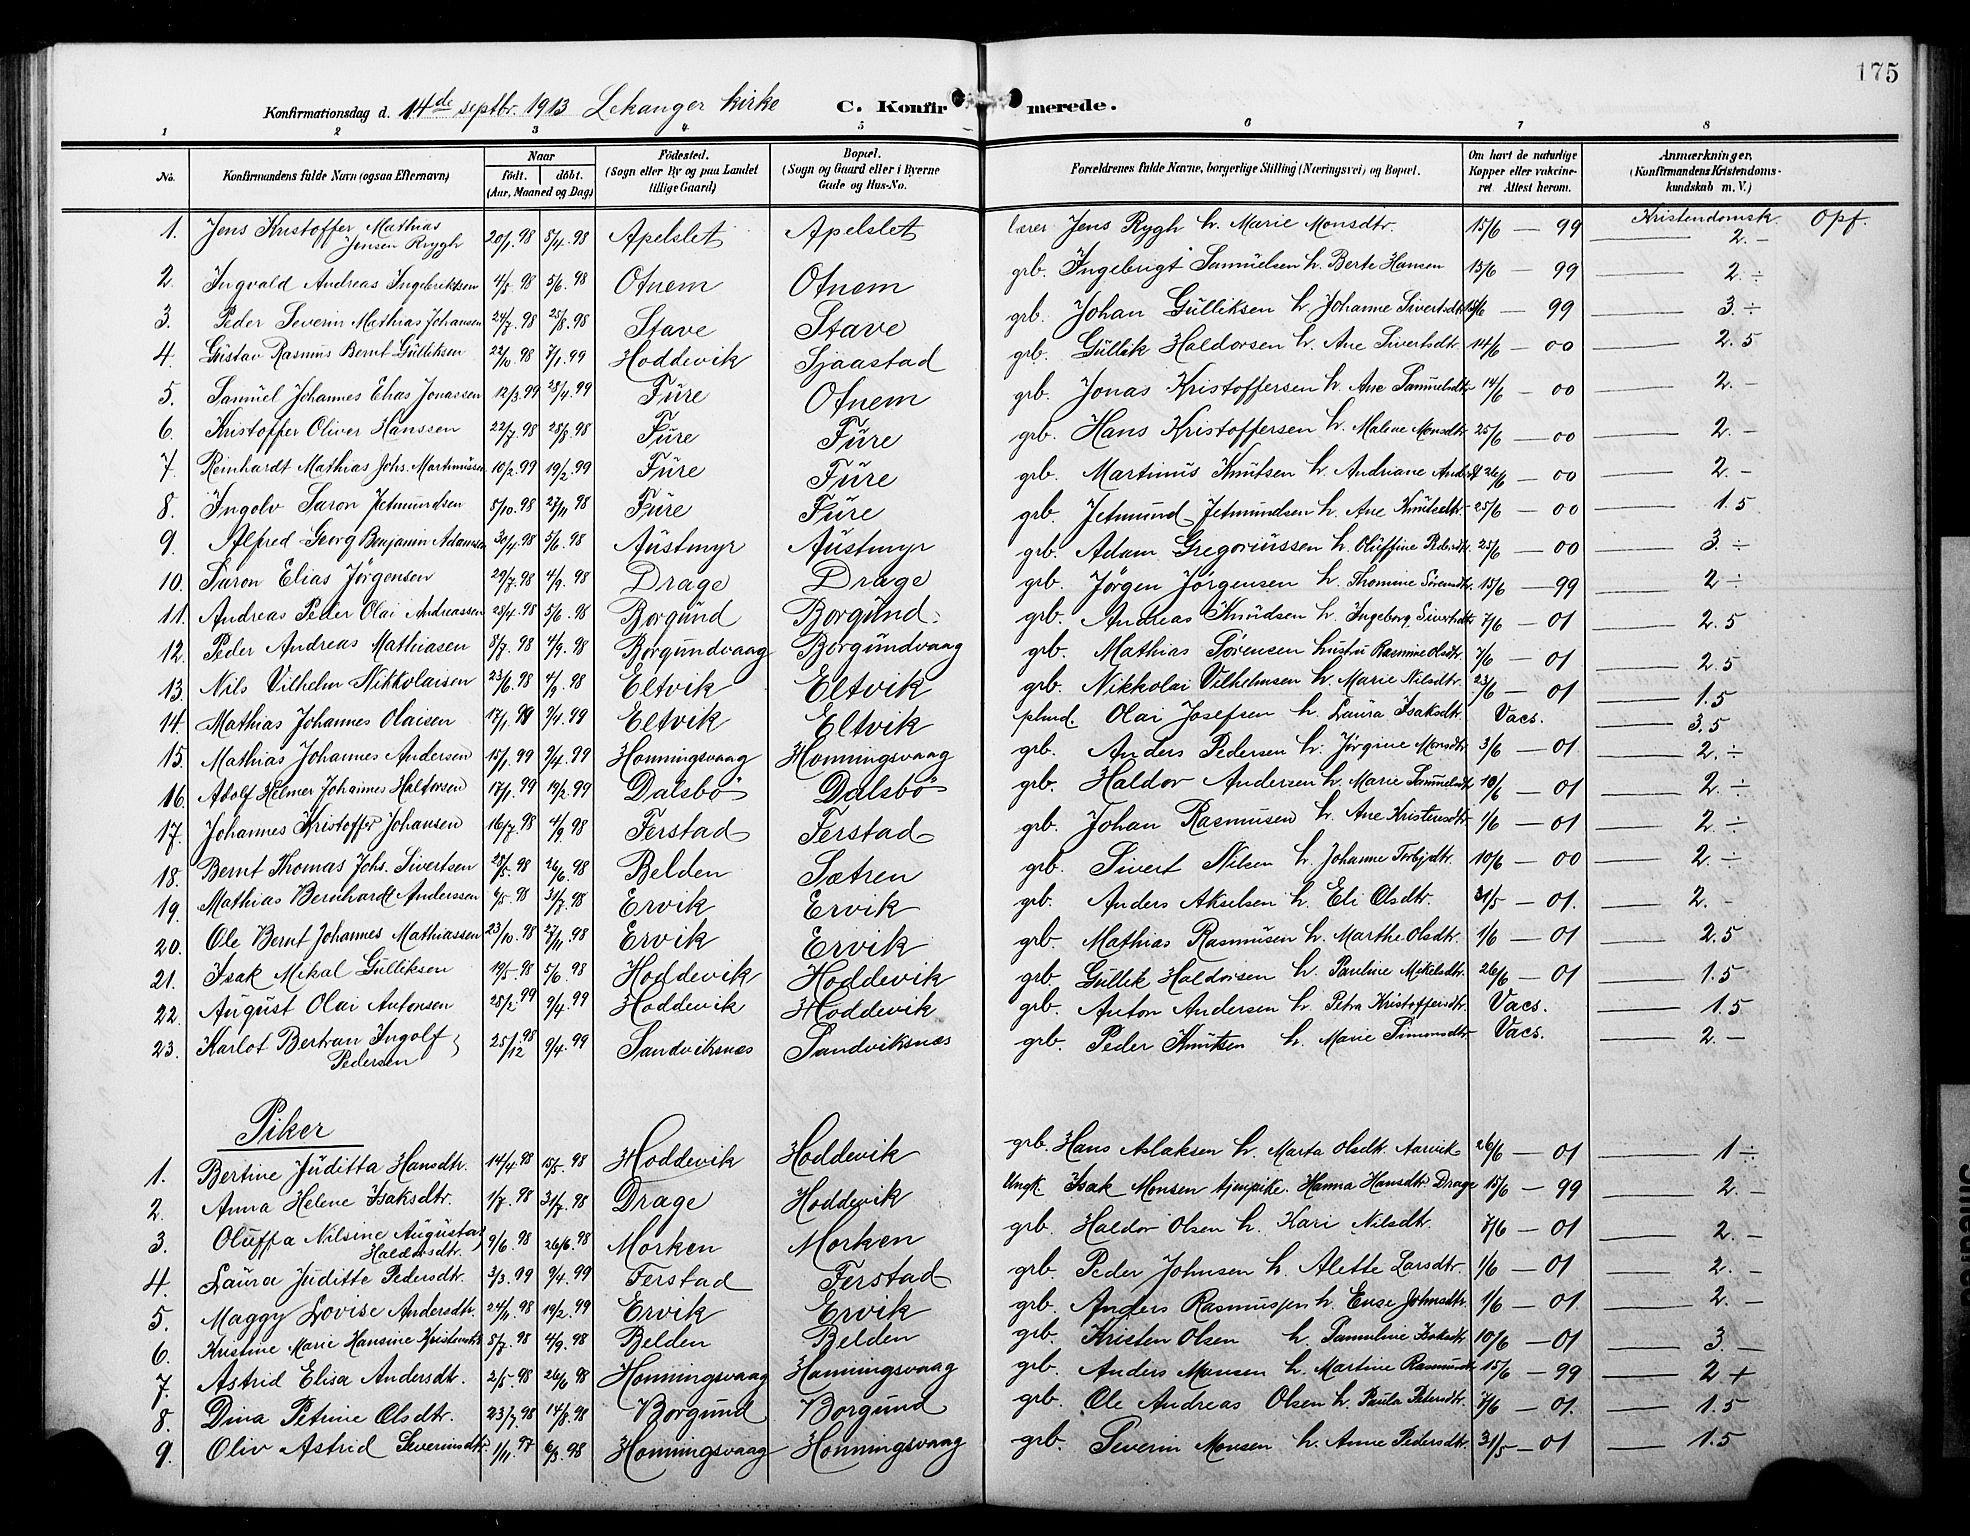 175
Konfirmationsdag d. 14de septbr. 1913 Lekanger kirke C. Konfirmerede.
1 2 3 4 5 6 7 8
No. Konfirmandens fulde Navn (ogsaa Efternavn) Naar födt. döbt. (Aar, Maaned og Dag) Födested. (Sogn eller By og paa Landet tillige Gaard) Bopæl. (Sogn og Gaard eller i Byerne Gade og Hus-No. Forældrenes fulde Navne, borgerlige Stilling (Næringsvei) og Bopæl. Om havt de naturlige Kopper eller vakcineret. Attest herom. Anmærkninger, (Konfirmandens Kristendomskundskab m. V.)
Kristendomsk. Opf.
1. Jens Kristoffer Mathias Jensen Rygh 20/1 98 5/4 98 Apelslet Apelslet lærer Jens Rygh h. Marie Monsdtr. 15/6 — 99 2. -
2. Ingvald Andreas Ingebriktsen 4/5 98 5/6 98 Otnem Otnem grb. Ingebrigt Samuelsen h. Berte Hansen 15/6 — 99 2. ÷
3. Peder Severin Mathias Johansen 24/7 98 25/8 98 Stave Stave grb. Johan Gulliksen h. Johanne Sivertsdtr. 15/6 — 99 3. ÷
4. Gustav Rasmus Bernt Gulliksen 22/10 98 7/1 99 Hoddevik Sjaastad grb. Gullik Haldorsen h. Ane Sivertsdt. 14/6 — 00 2.5
5. Samuel Johannes Elias Jonassen 12/3 99 23/4 99 Fure Otnem grb. Jonas Kristoffersen h. Ane Samuelsdtr 14/6 — 00 2. -
6. Kristoffer Oliver Hanssen 22/7 98 28/8 98 Fure Fure grb. Hans Kristoffersen h. Malene Monsdtr. 25/6 — 00 2. -
7. Reinhardt Mathias Johs. Martinussen 10/2 99 19/2 99 Fure Fure grb. Martinus Knutsen h. Andriane 26/6 — 00 2. -
8. Ingolv Saron Jetmundsen 5/10 98 27/11 98 Fure Fure grb. Jetmund Jetmundsen h. Ane Knutsdtr. 25/6 — 00 1.5
9. Alfred Georg Benjamin Adamsen 30/4 98 5/6 98 Austmyr Austmyr grb. Adam Gregoriussen h. Oluffine Pedersdtr. 25/6 — 00 3. ÷
10. Saron Elias Jörgensen 29/7 98 4/9 98 Drage Drage grb. Jörgen Jörgensen h. Thomine Sörensdtr 15/6 — 99 2 ÷
11. Andreas Peder Olai Andreassen 28/4 98 5/6 98 Borgund Borgund. grb. Andreas Knudsen h. Ingeborg Sivertsdtr 7/6 — 01 2.5
12. Peder Andreas Mathiasen 8/7 98 4/9 98 Borgundvaag Borgundvaag grb. Mathias Sörensen hustru Rasmine Olsdtr. 7/6 — 01 2.5
13. Nils Vilhelm Nikkolaisen 23/6 98 4/9 98 Eltvik Eltvik grb. Nikkolai Vilhelmsen h. Marie Nilsdtr. 23/6 — 01 1.5
14. Mathias Johannes Olaisen 17/1 99 9/4 99 Eltvik Eltvik plmd. Olai Josefsen h. Laura Isaksdtr. Vacs. 3.5
15. Mathias Johannes Andersen 15/1 99 9/4 99 Honningsvaag Honningsvaag grb. Anders Pedersen h. Jörgine Monsdtr. 3/6 — 01 2. ÷
16. Adolf Helmer Johannes Haldorsen 17/1 99 19/2 99 Dalsbö Dalsbö grb. Haldor Andersen h. Marie Samuelsdtr 10/6 — 01 2. ÷
17. Johannes Kristoffer Johansen 16/7 98 4/9 98 Ferstad Ferstad grb. Johan Rasmusen h. Ane Kristensdtr 1/6 — 01 2. ÷
18. Bernt Thomas Johs. Sivertsen 23/5 98 26/6 98 Belden Sætren grb. Sivert Nilsen h. Johanne Torbjdtr. 10/6 — 00 2. ÷
19. Mathias Bernhardt Anderssen 6/5 98 31/7 98 Ervik Ervik grb. Anders Akselsen h. Eli Olsdtr. 31/5 — 01. 2. -
20. Ole Bernt Johannes Mathiassen 23/10 98 27/11 98 Ervik Ervik grb. Mathias Rasmusen h. Marthe Olsdtr. 1/6 — 01 2.5
21. Isak Mikal Gulliksen 19/5 98 5/6 98 Hoddevik Hoddevik grb. Gullik Haldorsen h. Pauline Mikelsdtr 26/6 — 01 1.5
22. August Olai Antonsen 28/2 99 9/4 99 Hoddevik Hoddevik grb. Anton Andersen h. Petra Kristoffersdtr. Vacs. 1.5
23. Karlot Bertran Ingolf Pedersen 25/12 98 9/4 99 Sandviksnæs Sandviksnæs grb. Peder Knutsen h. Marie Simonsdtr Vacs. 2. -
Piker
1. Bertine Juditta Hansdtr. 14/4 98 15/5 98 Hoddevik Hoddevik grb. Hans Aslaksen h. Marta Olsdtr. Aarvik 26/6 — 01 1 ÷
2. Anna Helene Isaksdtr. 1/7 98 31/7 98 Drage Hoddevik Ungk. Isak Monsen tjenpike. Hanna Hansdtr Drage 15/6 — 99 2. -
3. Oluffa Nilsine Augusta Haldorsdtr. 9/6 98 26/6 98 Morken Morken grb. Haldor Olsen h. Kari Nilsdtr. 7/6 — 01 2. -
4. Laura Juditte Pedersdtr. 3/3 99 9/4 99 Ferstad Ferstad grb. Peder Johnsen h. Alette Larsdtr. 1/6 — 01 2. -
5. Maggy Lovise Andersdtr. 24/11 98 19/2 99 Ervik Ervik grb. Anders Rasmussen h. Ense Johnsdtr. 1/6 — 01 2. -
6. Kristine Marie Hansine Kristensdtr 5/7 98 4/9 98 Belden Belden grb. Kristen Olsen h. Samueline Isaksdtr 10/6 — 01 3. -
7. Astrid Elisa Andersdtr. 2/5 98 26/6 98 Honningsvaag Honningsvaag grb. Anders Monsen h. Martine Rasmusdtr 15/6 — 99 2 +
8. Dina Petrine Olsdtr. 23/7 98 14/8 98 Borgund Borgund grb. Ole Andreas Olsen h. Paula Petersdtr. 7/6 — 01. 1.5
9. Oliv Astrid Severinsdtr. 1/11 97 6/3 98 Honningsvaag Honningsvaag grb. Severin Monsen h. Anne Pedersdtr. 31/5 — 01 1.5